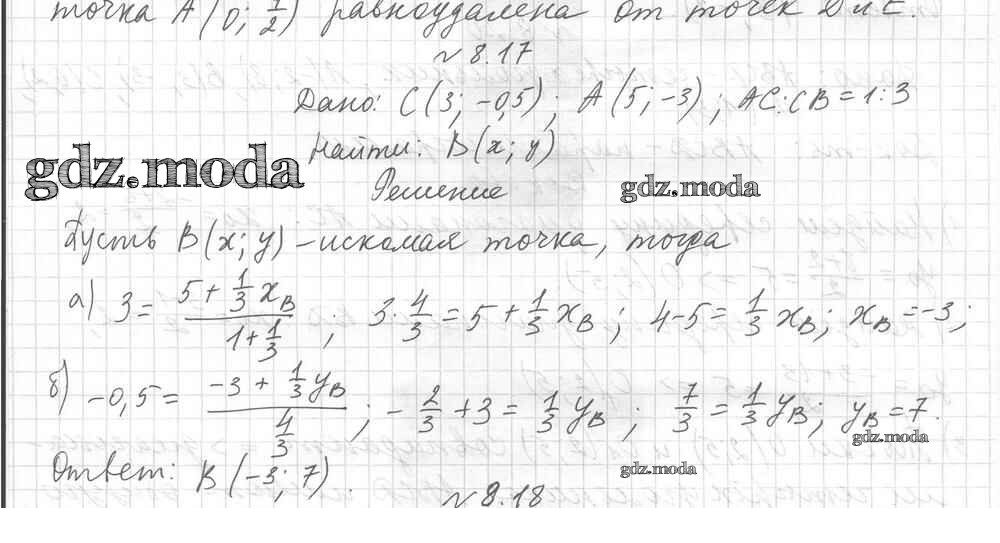 точка A(0; 7/2) равноудалена от точек D и E.
№ 8.17
Дано: C(3; -0,5); A(5; -3); AC:CB = 1:3
Найти: B(x; y)
gdz.moda
Решение
gdz.moda
Пусть B(x; y) - искомая точка, тогда
а) 3 = (5 + 1/3 x_B)/(1 + 1/3); 3 · 4/3 = 5 + 1/3 x_B; 4-5 = 1/3 x_B; x_B = -3;
б) -0,5 = (-3 + 1/3 y_B)/(4/3); -2/3 + 3 = 1/3 y_B; 7/3 = 1/3 y_B; y_B = 7.
gdz.moda
Ответ: B(-3; 7).
gdz.moda
№ 8.18